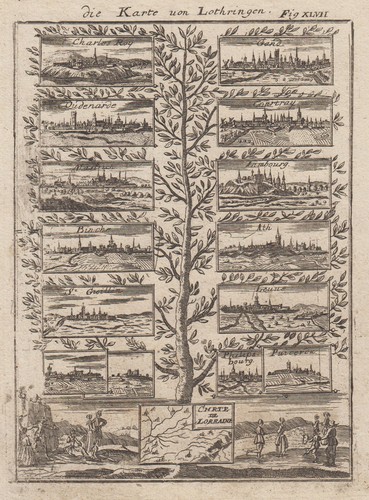 die Karte von Lothringen.
Fig XLVII
Charles Roy
Gand
Oudenarde
Courtray
Limbourg
Binche
Ath
St Guillin
Leuue
Philips
bourg
CARTE
DE
LORRAINE